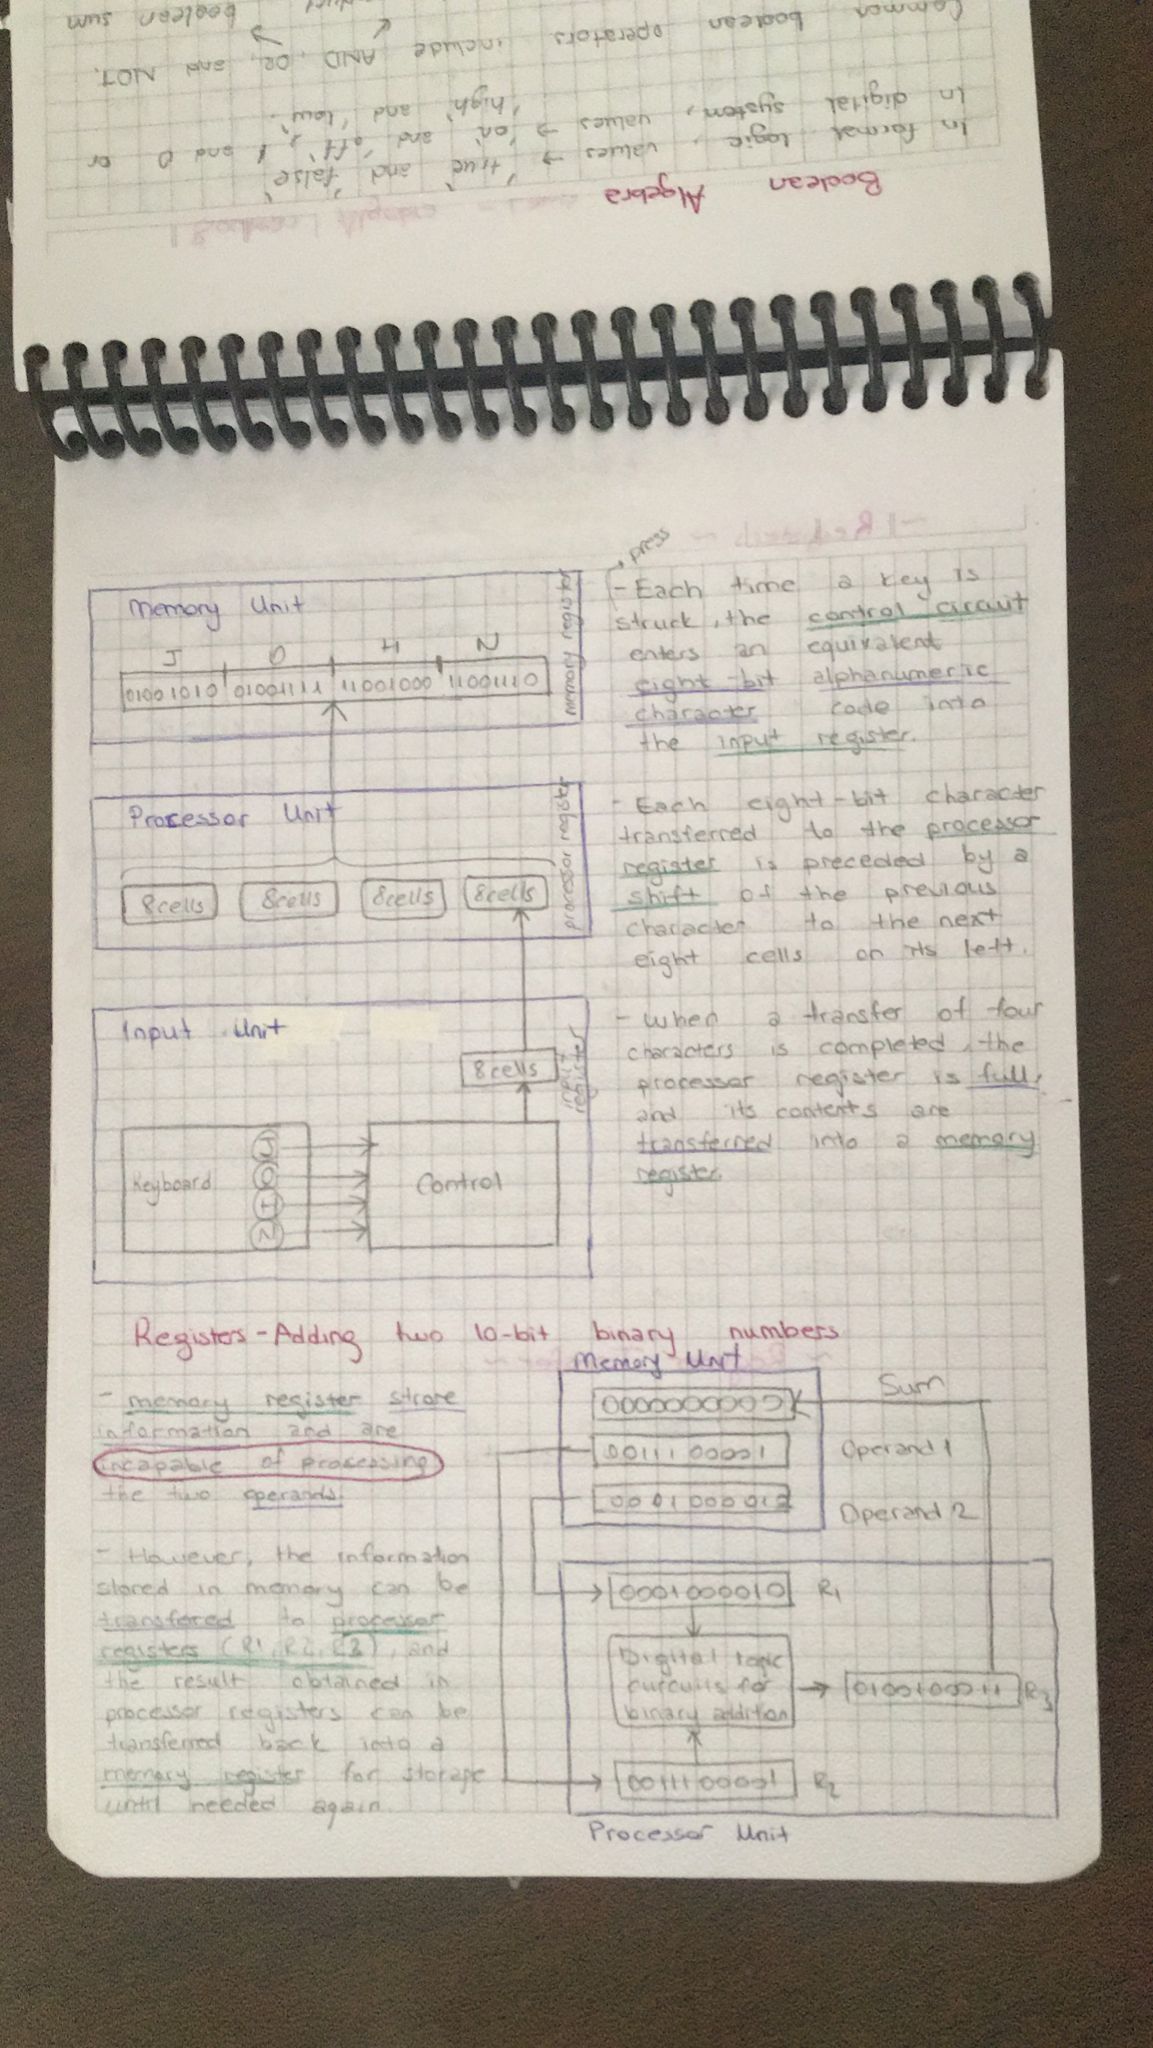 Common boolean operators include AND, OR, and NOT.
boolean sum
In digital system, values → 'on' and 'off', 1 and 0 or
'high' and 'low'.
In formal logic, values → 'true' and 'false'
Boolean Algebra
Memory Unit
J O H N
01001010 01001111 11001000 11001110
memory register
Processor Unit
8cells 8cells 8cells 8cells
processor register
Input Unit
8cells
input register
Keyboard
J
O
H
N
Control
press
- Each time a key is
struck, the control circuit
enters an equivalent
eight-bit alphanumeric
character code into
the input register.
- Each eight-bit character
transferred to the processor
register is preceded by a
shift of the previous
character to the next
eight cells on its left.
- When a transfer of four
characters is completed, the
processor register is full,
and its contents are
transferred into a memory
register.
Registers - Adding two 10-bit binary numbers
- memory register strore
information and are
incapable of processing
the two operands.
- However, the information
stored in memory can be
transfered to processor
registers (R1, R2, R3), and
the result obtained in
processor registers can be
transferred back into a
memory register for storage
until needed again.
Memory Unit
0000000000
Sum
0011100001
Operand 1
0001000010
Operand 2
0001000010 R1
Digital logic
circuits for
binary addition
0100100011 R3
0011100001 R2
Processor Unit